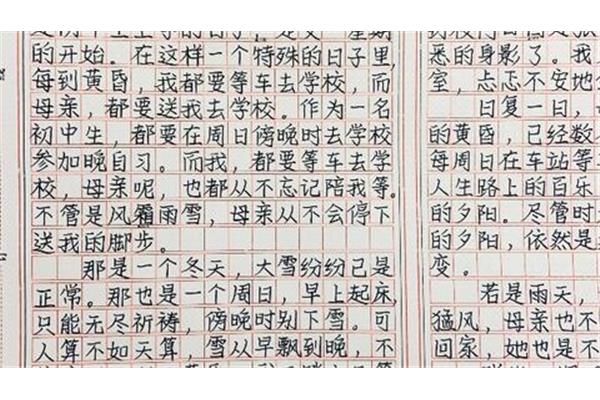 的开始。在这样一个特殊的日子里,
每到黄昏,我都要等车去学校,而
母亲,都要送我去学校。作为一名
初中生,都要在周日傍晚时去学校
参加晚自习。而我,都要等车去学
校,母亲呢,也都从不忘记陪我等。
不管是风霜雨雪,母亲从不会停下
送我的脚步。
那是一个冬天,大雪纷纷己是
正常。那也是一个周日,早上起床,
只能无尽祈祷,傍晚时别下雪。可
人算不如天算,雪从早飘到晚,不
悉的身影了。我
室,忐忑不安地
日复一日,母
的黄昏,已经数
每周日在车站等
人生路上的百乐
的夕阳。尽管时
的夕阳,依然是
变。
若是雨天,
猛风,母亲也不
回家,她也是不